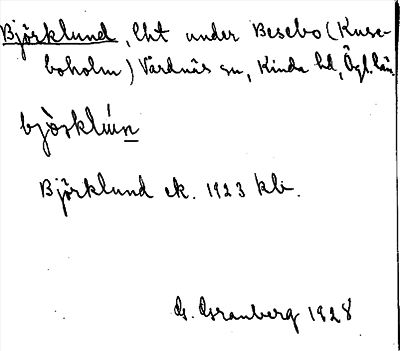 Björklund, lht under Besebo (Kuse-
boholm) Vårdnäs sn, Kinda hd, Ögl. län
bjòrklún
Björklund ek. 1923 kbr.
G. Granberg 1928